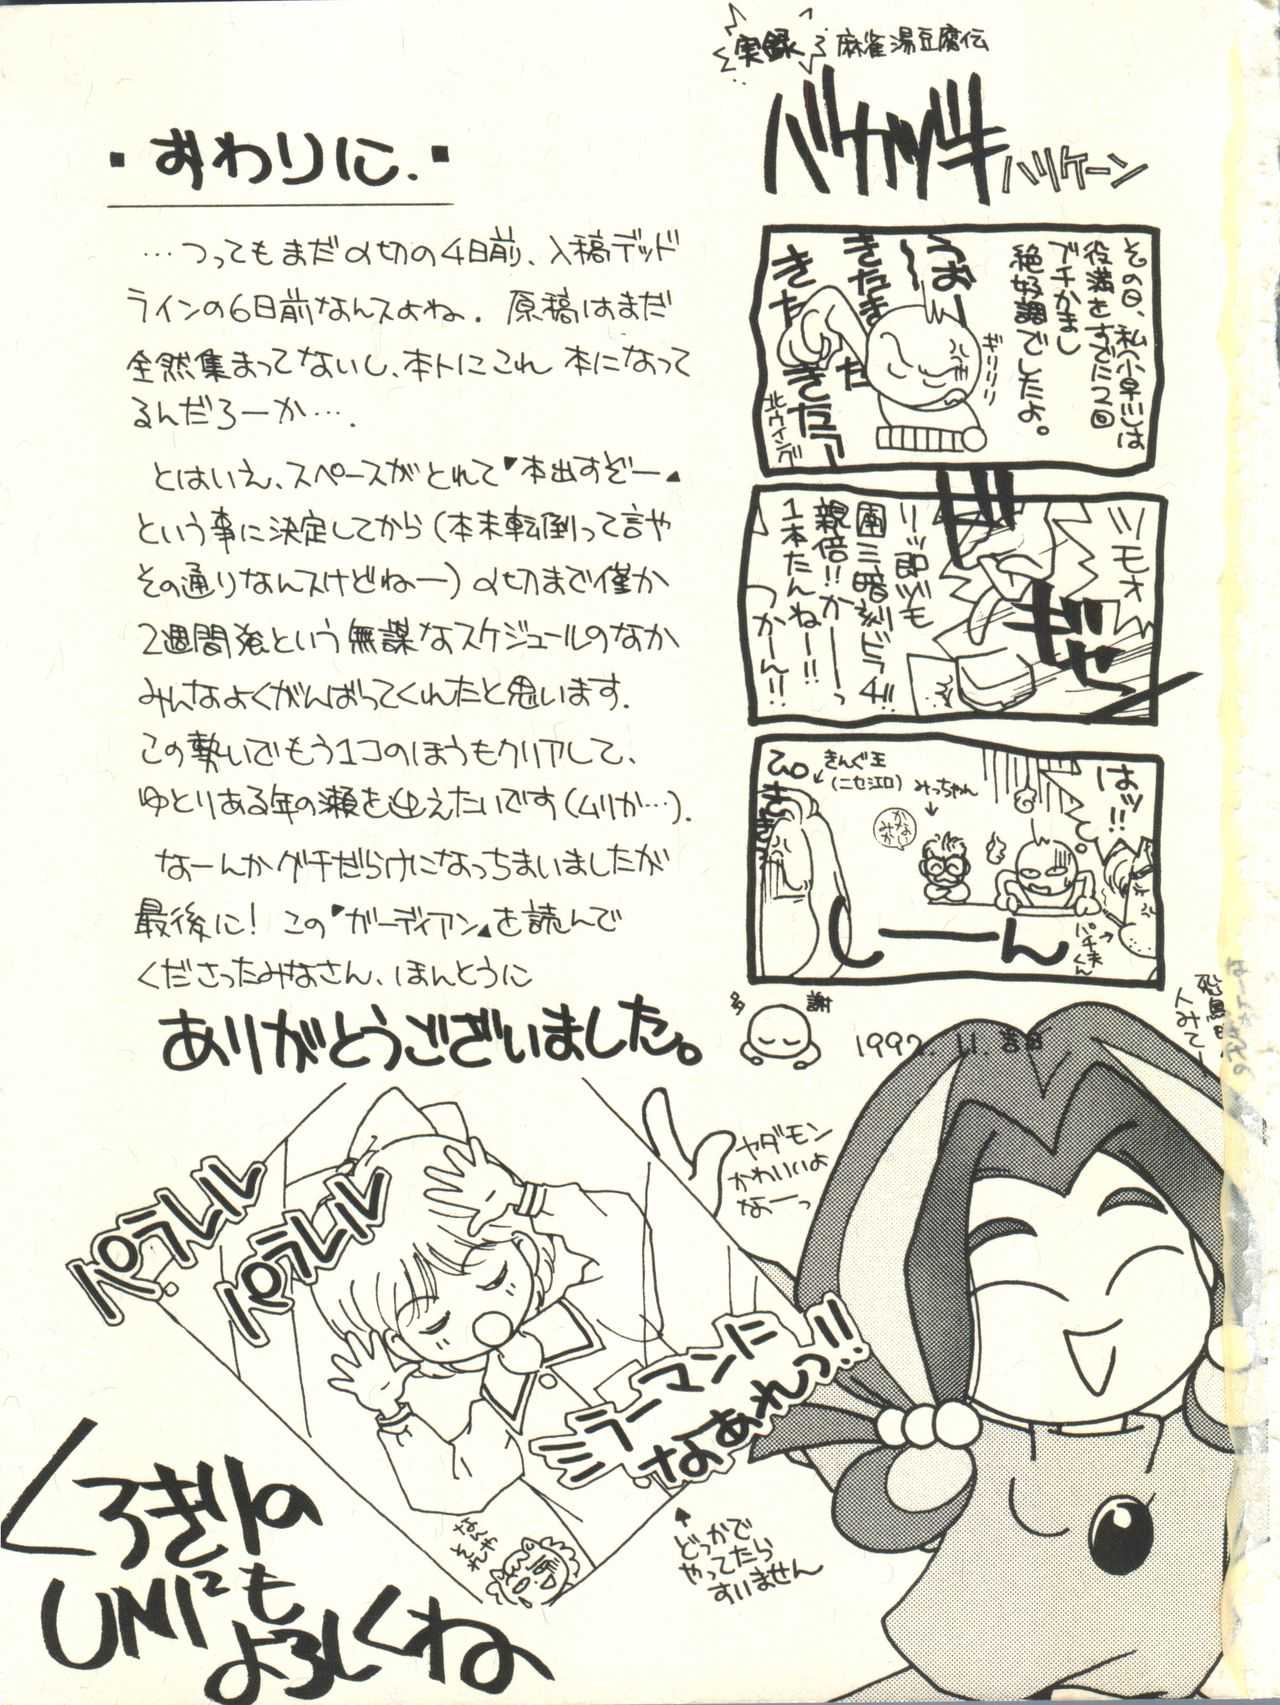 ・おわりに.・
…つってもまだ〆切の4日前、入稿デッド
ラインの6日前なんスよね. 原稿はまだ
全然集まってないし、本トにこれ 本になって
るんだろーか….
とはいえ、スペースがとれて「本出すぞー」
という事に決定してから(本末転倒って言や
その通りなんスけどねー)〆切まで僅か
2週間強という無謀なスケジュールのなか
みんなよくがんばってくれたと思います.
この勢いでもう1コのほうもクリアして、
ゆとりある年の瀬を迎えたいです(ムリか…).
なーんかグチだらけになっちまいましたが
最後に! この「ガーディアン」を読んで
くださったみなさん、ほんとうに
ありがとうございました。
実録 麻雀湯豆腐伝
バカヅキ
ハリケーン
その日、私(小早)は
役満をすでに2回
ブチかまし
絶好調でしたよ。
うおー
きたきた
きたきたー
ギリリリ
北ウイング
ツモォ
ギャン
リーッ即ヅモ
面三暗刻ドラ4!!
親倍!!かーーっ
1本たんねー!!
つかーん!!
はッ!!
きんぐ王
(ニセ江口)
みっちゃん
パチ夫くん
しーーん
多謝
1992. 11. 吉日
ヤダモン
かわいいよ
なーっ
パラレル
パラレル
ミラーマンに
なあれっ!!
どっかで
やってたら
すいません
くろきりの
UNI²も
よろしくね